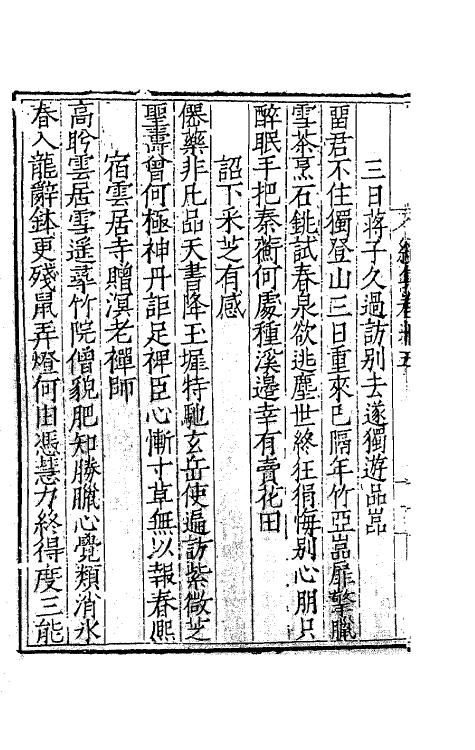 三日蔣子久過訪別去遂獨遊品嵓
留君不住獨登山三日重來已隔年竹亞嵓扉擎臘
雪茶烹石銚試春泉欲逃塵世終狂狷悔別心朋只
醉眠手把秦衡何處種溪邊幸有賣花田
詔下采芝有感
僊藥非凡品天書降玉墀特馳玄岳使遍訪紫微芝
聖壽曾何極神丹詎足裨臣心慚寸草無以報春熙
宿雲居寺贈溟老禪師
高眄雲居雪遥尋竹院僧貌肥知勝臘心覺類消氷
春入龍辭鉢更殘鼠弄燈何由憑慧力終得度三能